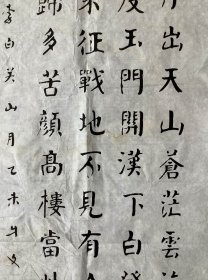 出天山蒼茫雲
度玉門開漢下白登
來征戰地不見有人
歸多苦顏高樓當
李白关山月乙未年文